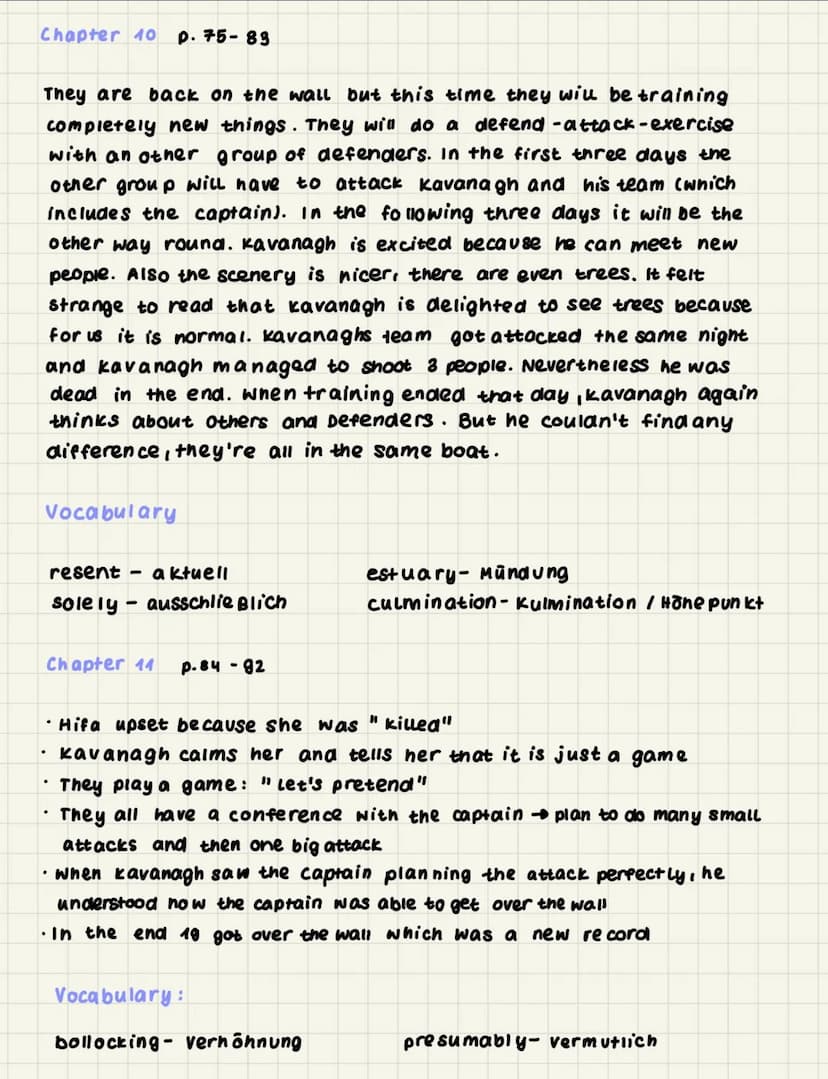 Chapter 10 p. 75-83
They are back on the wall but this time they will be training
completely new things. They will do a defend-attack-exercise
with an other group of defenders. In the first three days the
other group will have to attack Kavanagh and his team (which
includes the captain). In the following three days it will be the
other way round. Kavanagh is excited because he can meet new
people. Also the scenery is nicer, there are even trees. It felt
strange to read that Kavanagh is delighted to see trees because
for us it is normal. Kavanaghs team got attacked the same night
and Kavanagh managed to shoot 3 people. Nevertheless he was
dead in the end. When training ended that day, Kavanagh again
thinks about Others and Defenders. But he couldn't find any
difference, they're all in the same boat.
Vocabulary
resent - aktuell estuary - Mündung
solely - ausschließlich culmination - Kulmination / Höhepunkt
Chapter 11 p. 84 - 92
· Hifa upset because she was "killed"
· Kavanagh calms her and tells her that it is just a game
· They play a game: "Let's pretend"
· They all have a conference with the captain → plan to do many small
attacks and then one big attack
· When Kavanagh saw the Captain planning the attack perfectly, he
understood how the captain was able to get over the wall
· In the end got over the wall which was a new record
Vocabulary:
bollocking - Verhöhnung presumably - vermutlich